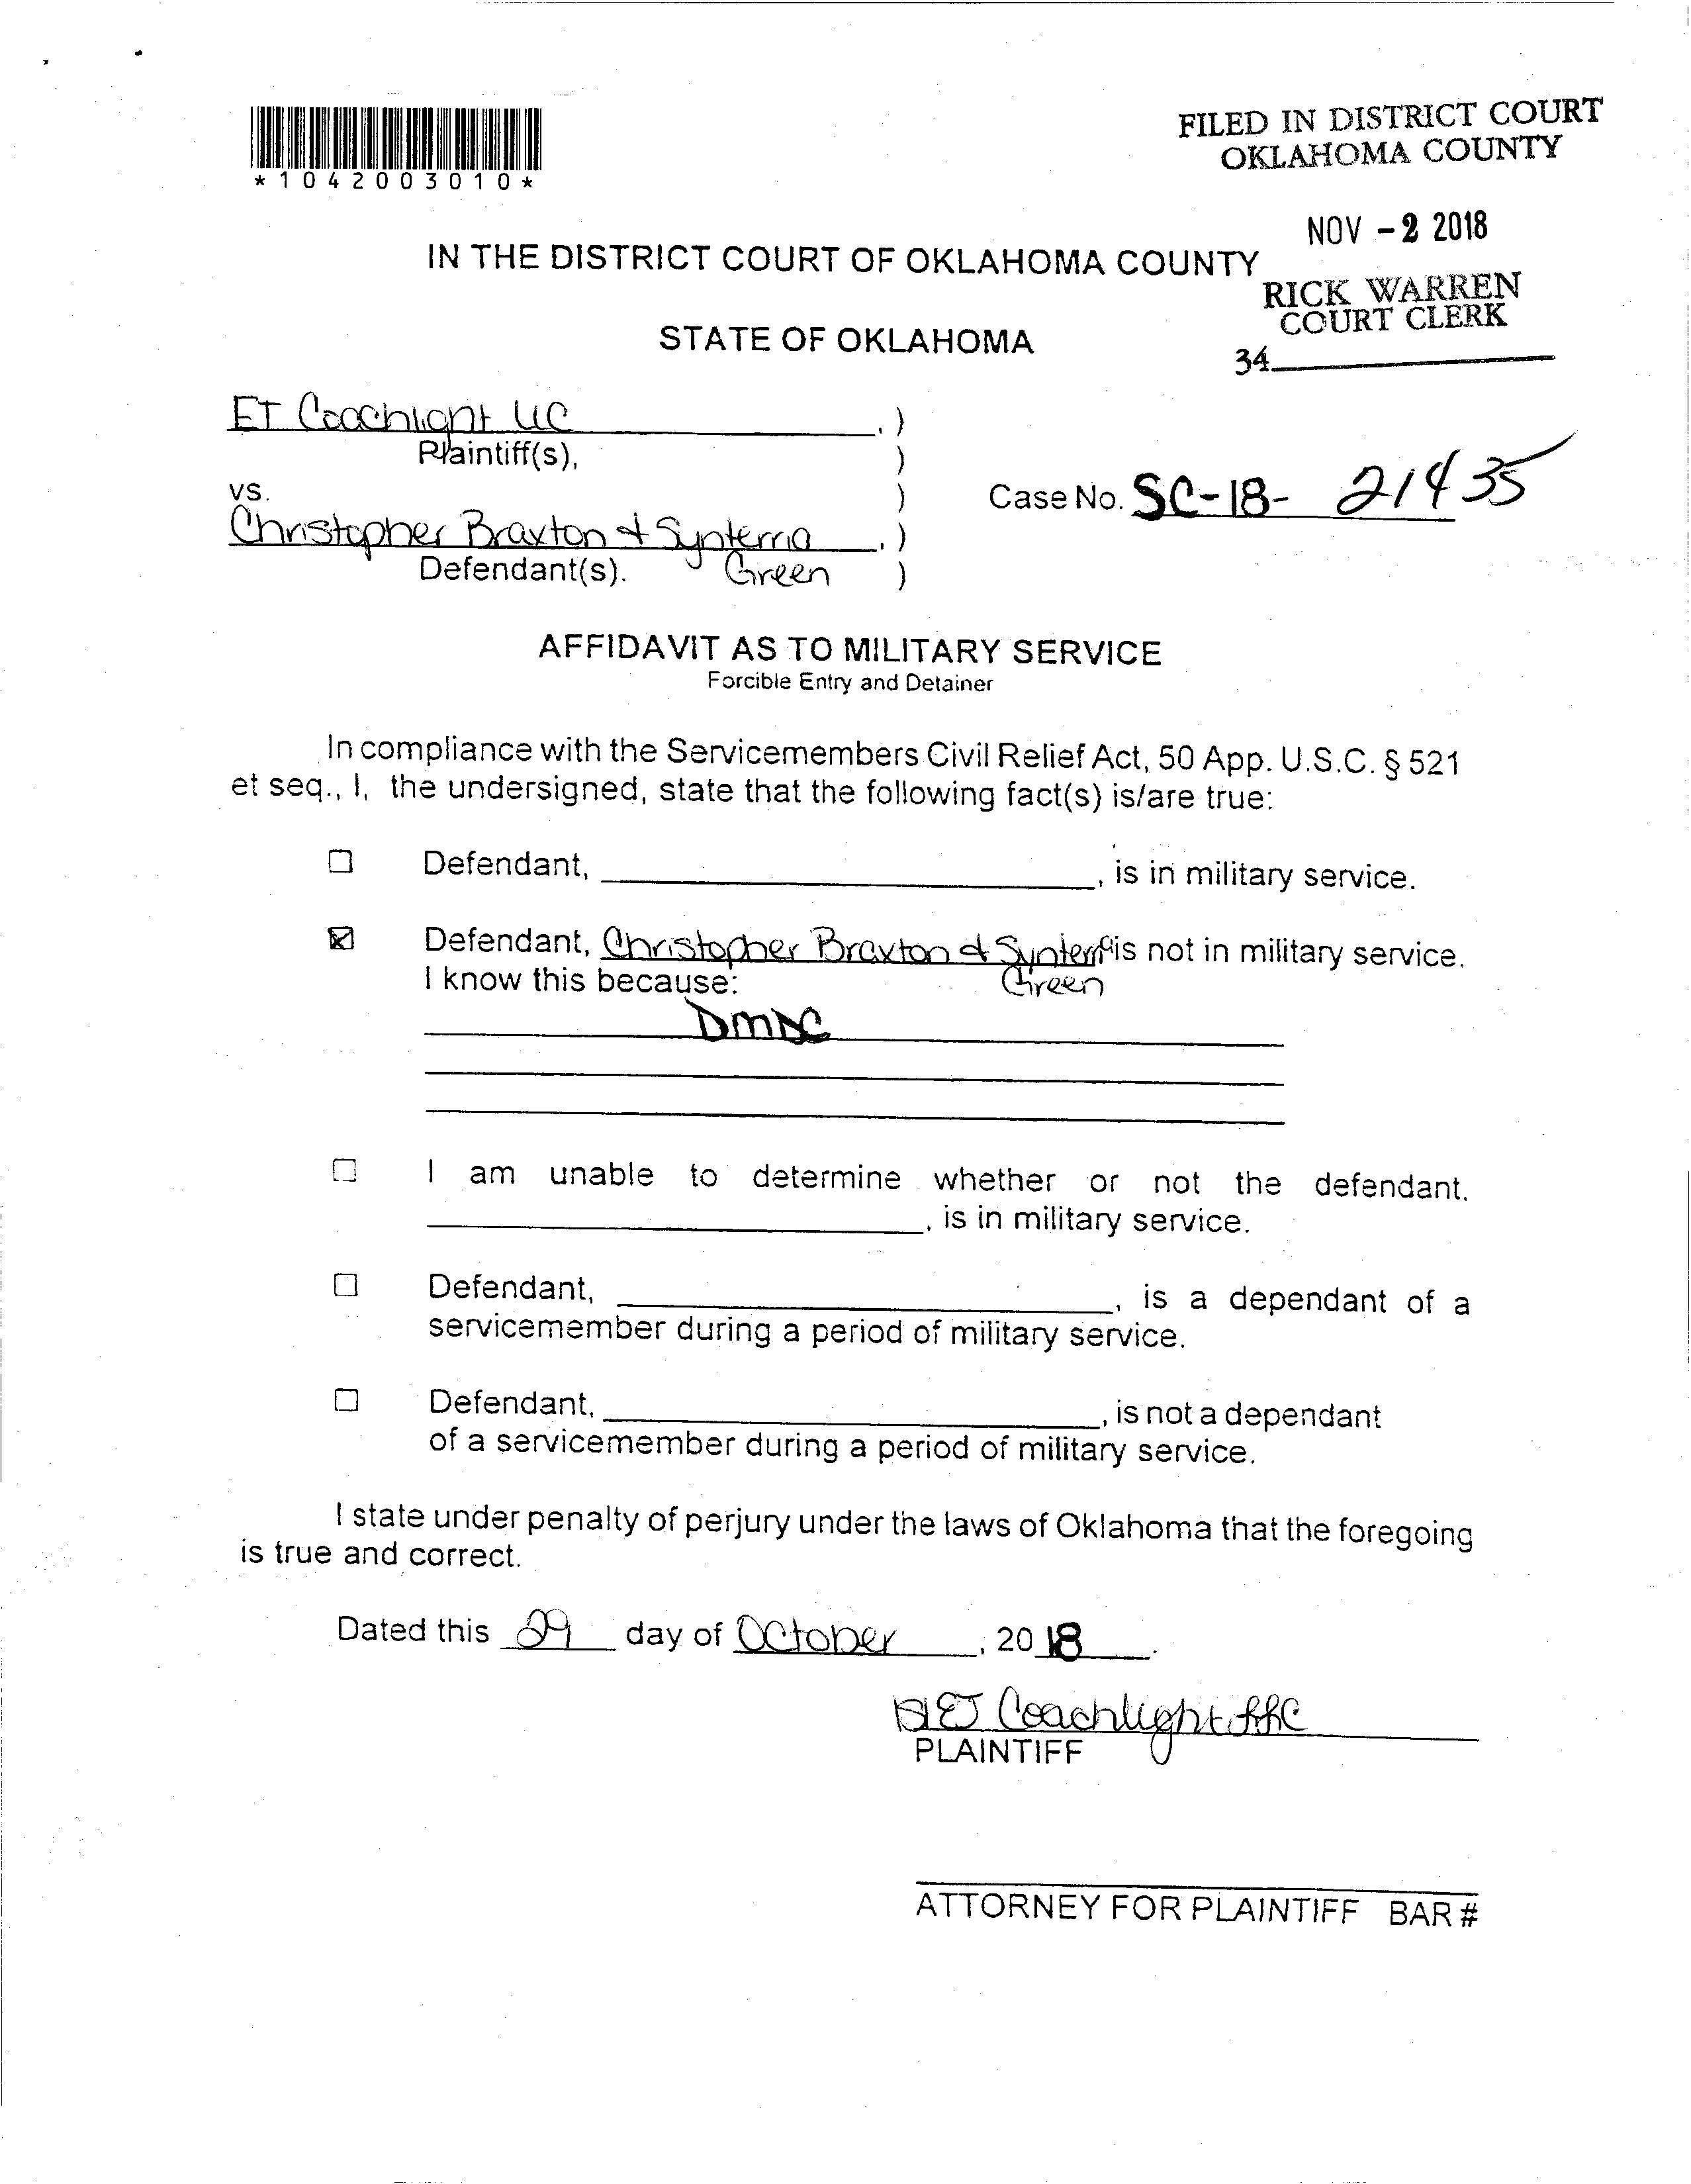 *1042003010*
FILED IN DISTRICT COURT
OKLAHOMA COUNTY
NOV - 2 2018
IN THE DISTRICT COURT OF OKLAHOMA COUNTY
RICK WARREN
COURT CLERK
STATE OF OKLAHOMA
34
ET Coachlight LLC , )
Plaintiff(s), )
vs. )
Case No. SC-18- 21435
Christopher Braxton & Synterria , )
Defendant(s). Green )
AFFIDAVIT AS TO MILITARY SERVICE
Forcible Entry and Detainer
In compliance with the Servicemembers Civil Relief Act, 50 App. U.S.C. § 521
et seq., I, the undersigned, state that the following fact(s) is/are true:
☐ Defendant, , is in military service.
☒ Defendant, Christopher Braxton & is not in military service.
I know this because: Green
DMDC
☐ I am unable to determine whether or not the defendant,
, is in military service.
☐ Defendant, , is a dependant of a
servicemember during a period of military service.
☐ Defendant, , is not a dependant
of a servicemember during a period of military service.
I state under penalty of perjury under the laws of Oklahoma that the foregoing
is true and correct.
Dated this 29 day of October , 20 18 .
ET Coachlight LLC
PLAINTIFF
ATTORNEY FOR PLAINTIFF BAR #